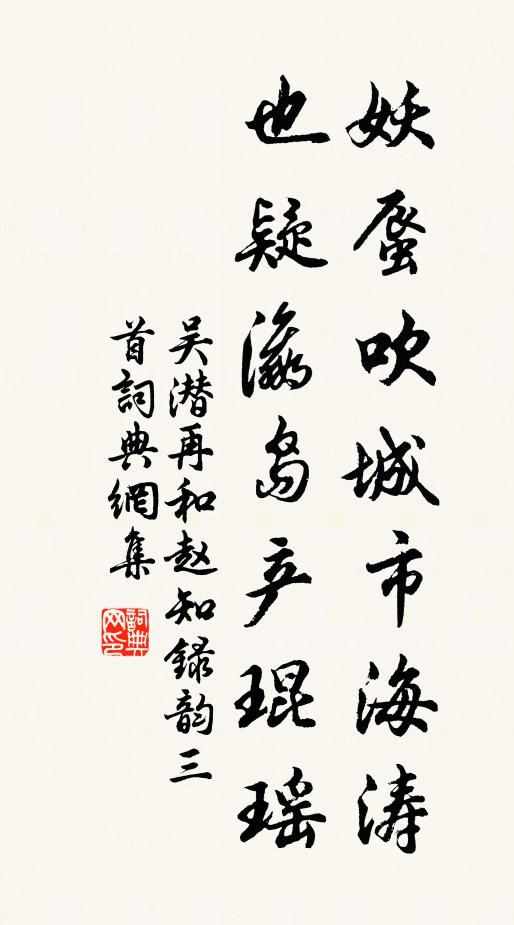 妖蜃吹城市海涛
也疑瀛岛产琨瑶
吴潜再和赵知録韵三
首詞典網集
詞典
网印